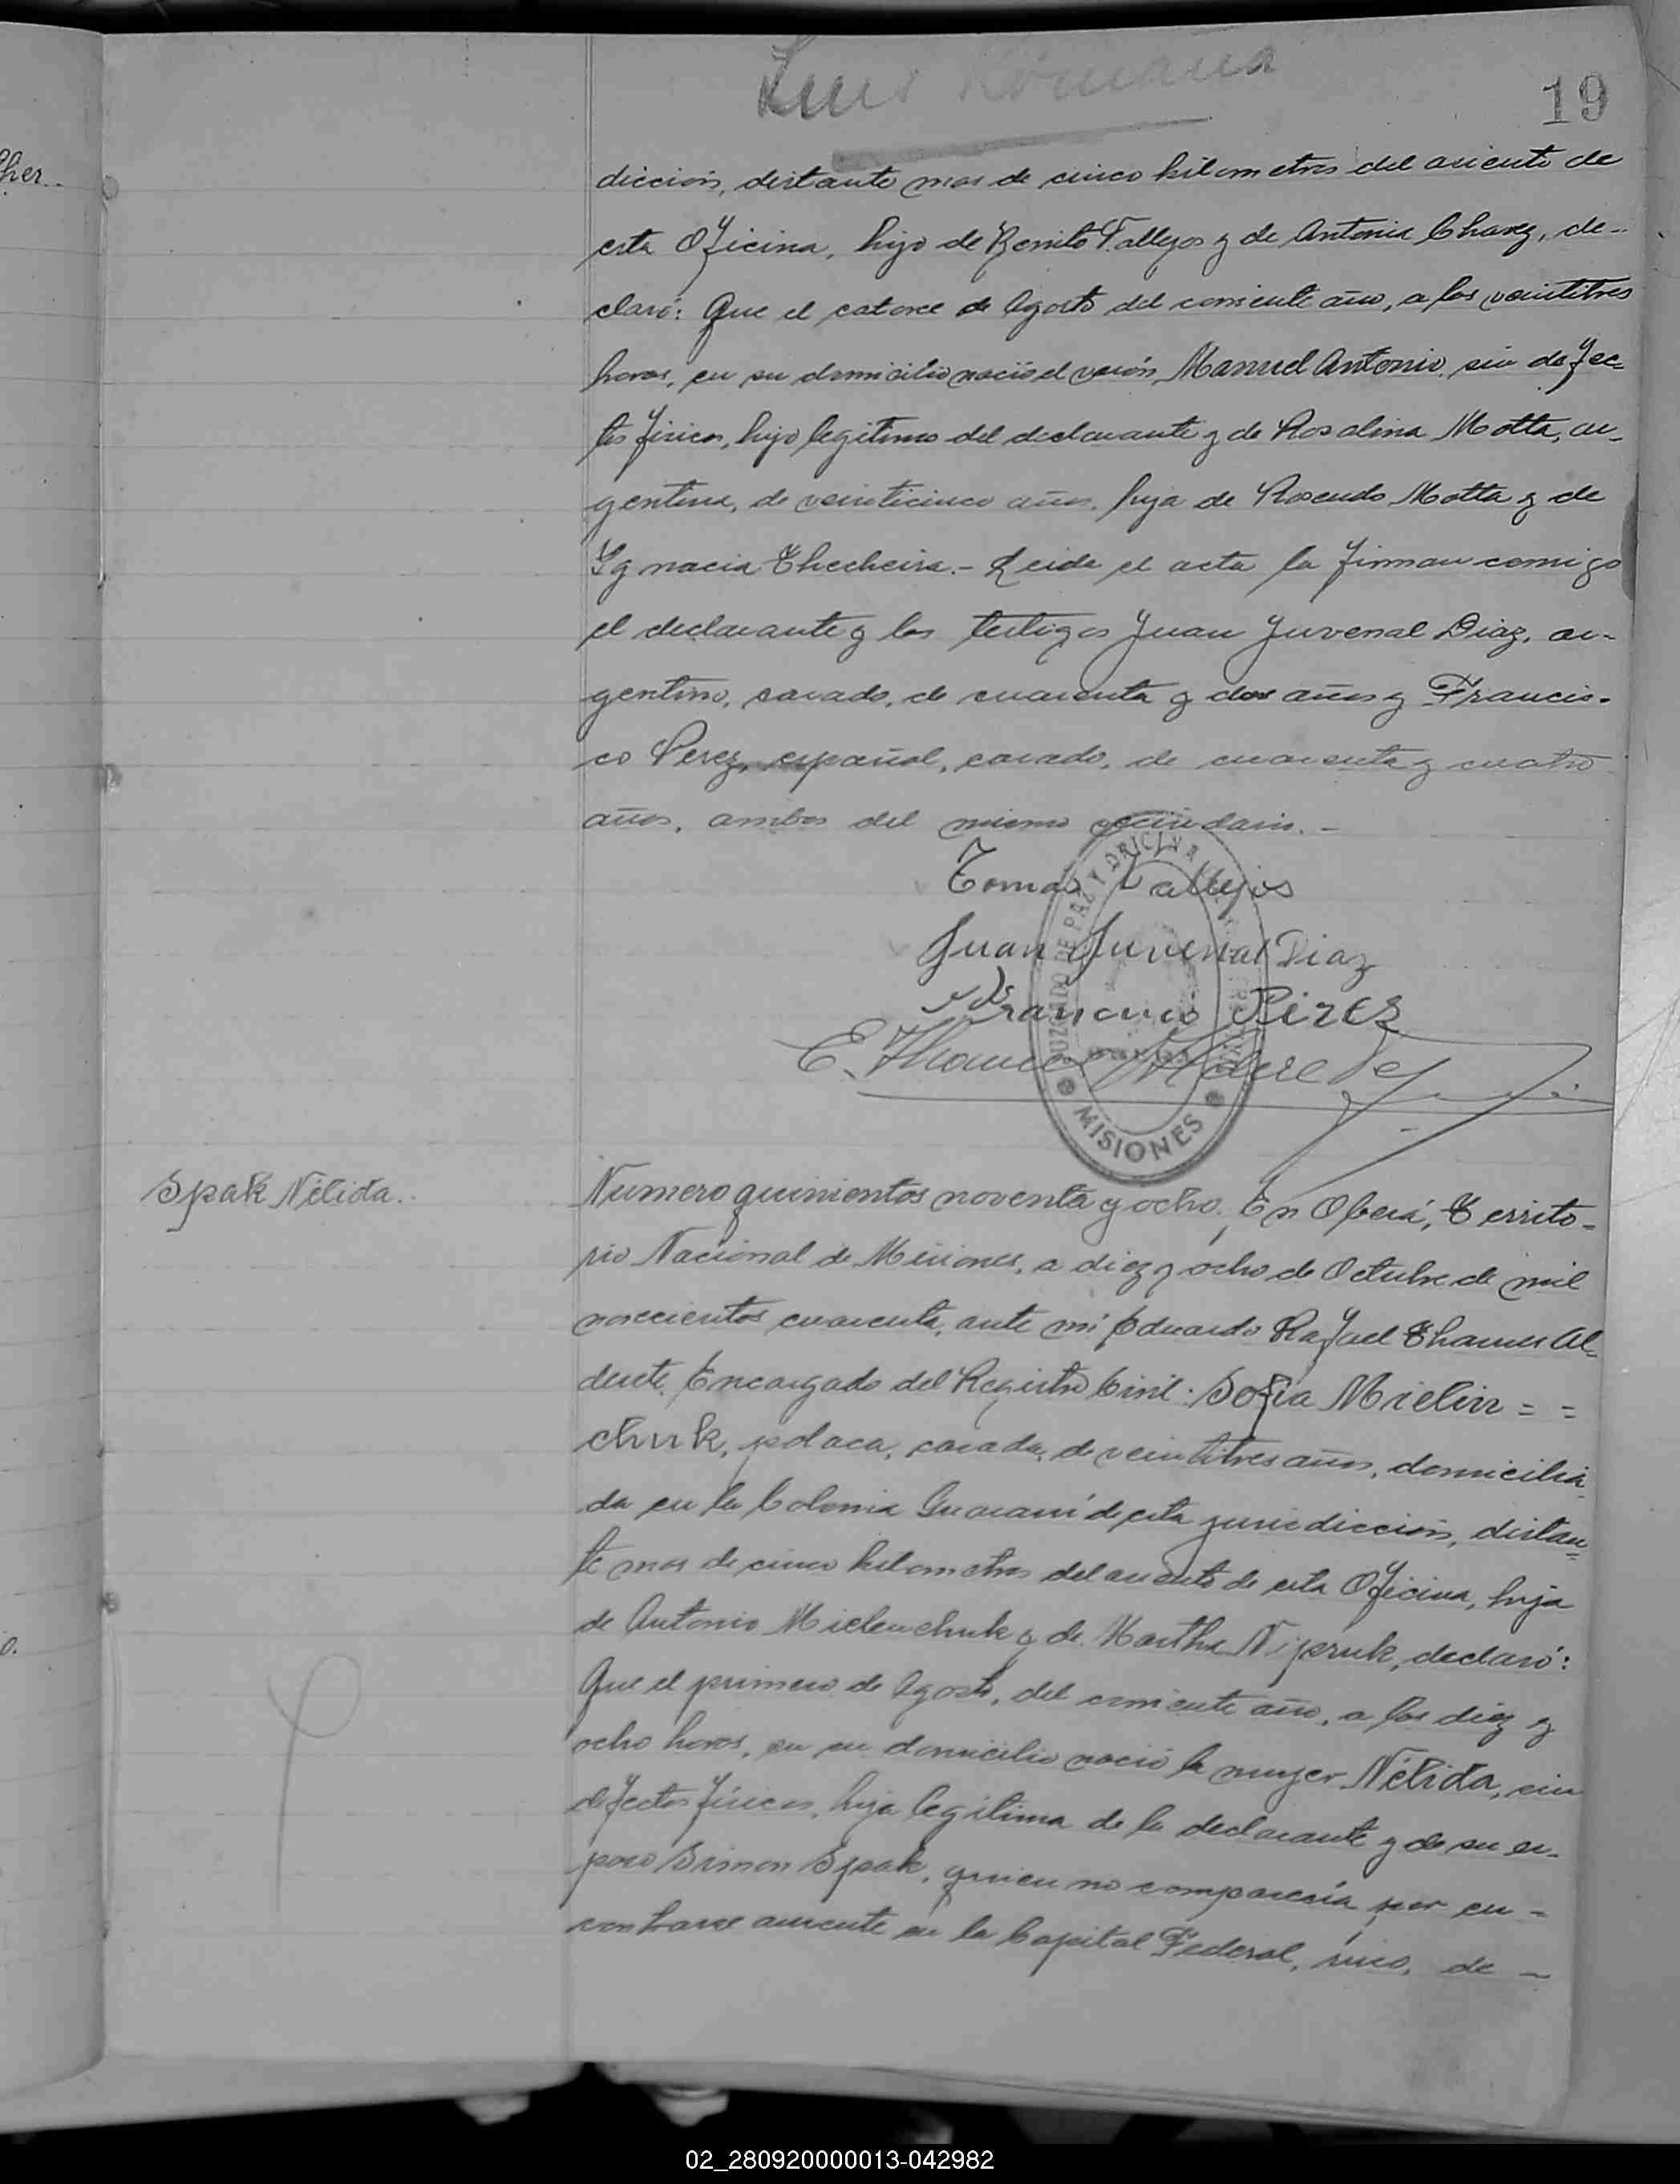 Luis Romaña
19
cher..
dicción, distante mas de cinco kilometros del asiento de
esta Oficina, hijo de Benito Vallejos y de Antonia Chavez, de-
claró: Que el catorce de Agosto del corriente año, a las veintitres
horas, en su domicilio nació el varón Manuel Antonio, sin defec-
tos fisicos, hijo legitimo del declarante y de Rosalina Motta, ar-
gentina, de veinticinco años, hija de Rosendo Motta y de
Ygnacia Checheira.- Leida el acta la firman comigo
el declarante y los testigos Juan Juvenal Diaz, ar-
gentino, casado, de cuarenta y dos años y Francis-
co Perez, español, casado, de cuarenta y cuatro
años, ambos del mismo vecindario.-
Tomas Vallejos
Juan Juvenal Diaz
Francisco Perez
E. Thames Alderete
JUZGADO DE PAZ Y OFICINA
MISIONES
Spak Nélida..
Numero quinientos noventa y ocho. En Oberá, Territo-
rio Nacional de Misiones, a diez y ocho de Octubre de mil
novecientos cuarenta, ante mí Eduardo Rafael Thames Al-
derete, Encargado del Registro Civil: Sofia Mielin = =
chuk, polaca, casada, de veintitres años, domicilia-
da en la Colonia Guaraní de esta jurisdicción, distan-
te mas de cinco kilometros del asiento de esta Oficina, hija
de Antonio Mielenchuk y de Martha Nipruk, declaró:
Que el primero de Agosto, del corriente año, a las diez y
ocho horas, en su domicilio nació la mujer Nélida, sin
defectos físicos, hija legítima de la declarante y de su es-
poso Simon Spak, quien no comparecía por en-
contrarse ausente en la Capital Federal, ruso, de -
o.
02_280920000013-042982